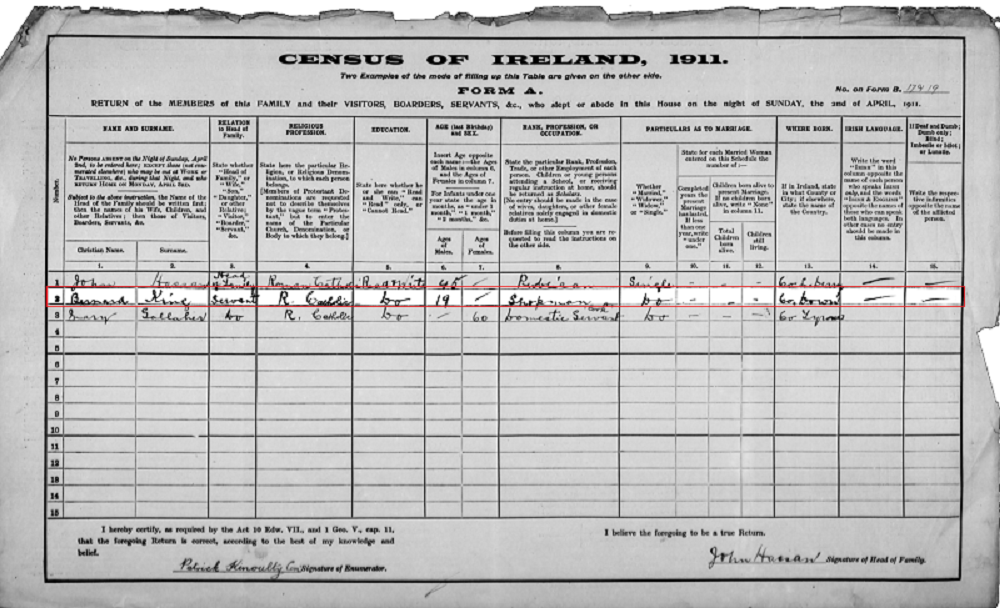 CENSUS OF IRELAND, 1911.
Two Examples of the mode of filling up this Table are given on the other side.
FORM A.
No. on Form B.
RETURN of the MEMBERS of this FAMILY and their VISITORS, BOARDERS, SERVANTS, &c., who slept or abode in this House on the night of SUNDAY, the 2nd of APRIL, 1911.
Number.
NAME AND SURNAME.
RELATION to Head of Family.
RELIGIOUS PROFESSION.
EDUCATION.
AGE (last Birthday) and SEX.
RANK, PROFESSION, OR OCCUPATION.
PARTICULARS AS TO MARRIAGE.
WHERE BORN.
IRISH LANGUAGE.
If Deaf and Dumb; Dumb only; Blind; Imbecile or Idiot; or Lunatic.
No Persons absent on the Night of Sunday, April 2nd, to be entered here; except those (not enumerated elsewhere) who may be out at Work or Travelling, &c., during that Night, and who return Home on Monday, April 3rd.
Subject to the above instruction, the Name of the Head of the Family should be written first; then the names of his Wife, Children, and other Relatives; then those of Visitors, Boarders, Servants, &c.
Christian Name. Surname.
State whether "Head of Family," or "Wife," "Son," "Daughter," or other Relative; "Visitor," "Boarder," "Servant," &c.
State here the particular Religion, or Religious Denomination, to which each person belongs.
[Members of Protestant Denominations are requested not to describe themselves by the vague term "Protestant," but to enter the name of the Particular Church, Denomination, or Body to which they belong.]
State here whether he or she can "Read and Write," can "Read" only, or "Cannot Read."
Insert Age opposite each name:—the Ages of Males in column 6, and the Ages of Females in column 7.
For Infants under one year state the age in months, as "under 1 month," "1 month," "2 months," &c.
Ages of Males. Ages of Females.
State the particular Rank, Profession, Trade, or other Employment of each person. Children or young persons attending a School, or receiving regular instruction at home, should be returned as Scholars.
[No entry should be made in the case of wives, daughters, or other female relatives solely engaged in domestic duties at home.]
Before filling this column you are requested to read the instructions on the other side.
Whether "Married," "Widower," "Widow," or "Single."
State for each Married Woman entered on this Schedule the number of:—
Completed years the present Marriage has lasted. If less than one year, write "under one."
Children born alive to present Marriage. If no children born alive, write "None" in column 11.
Total Children born alive. Children still living.
If in Ireland, state in what County or City; if elsewhere, state the name of the Country.
Write the word "Irish" in this column opposite the name of each person who speaks Irish only, and the words "Irish & English" opposite the names of those who can speak both languages. In other cases no entry should be made in this column.
Write the respective infirmities opposite the name of the afflicted person.
1. 2. 3. 4. 5. 6. 7. 8. 9. 10. 11. 12. 13. 14. 15.
1 John Hassan Head of Family Roman Catholic 45 — Single — — — — —
2 Bernard King Servant R. Catholic Do 19 — Shopman Do — — — Co. Down — —
3 Mary Gallaher do R. Catholic Do — 60 Cook Domestic Servant Do — — — Co Tyrone
4
5
6
7
8
9
10
11
12
13
14
15
I hereby certify, as required by the Act 10 Edw. VII., and 1 Geo. V., cap. 11,
that the foregoing Return is correct, according to the best of my knowledge and
belief.
Patrick Signature of Enumerator.
I believe the foregoing to be a true Return.
John Hassan Signature of Head of Family.